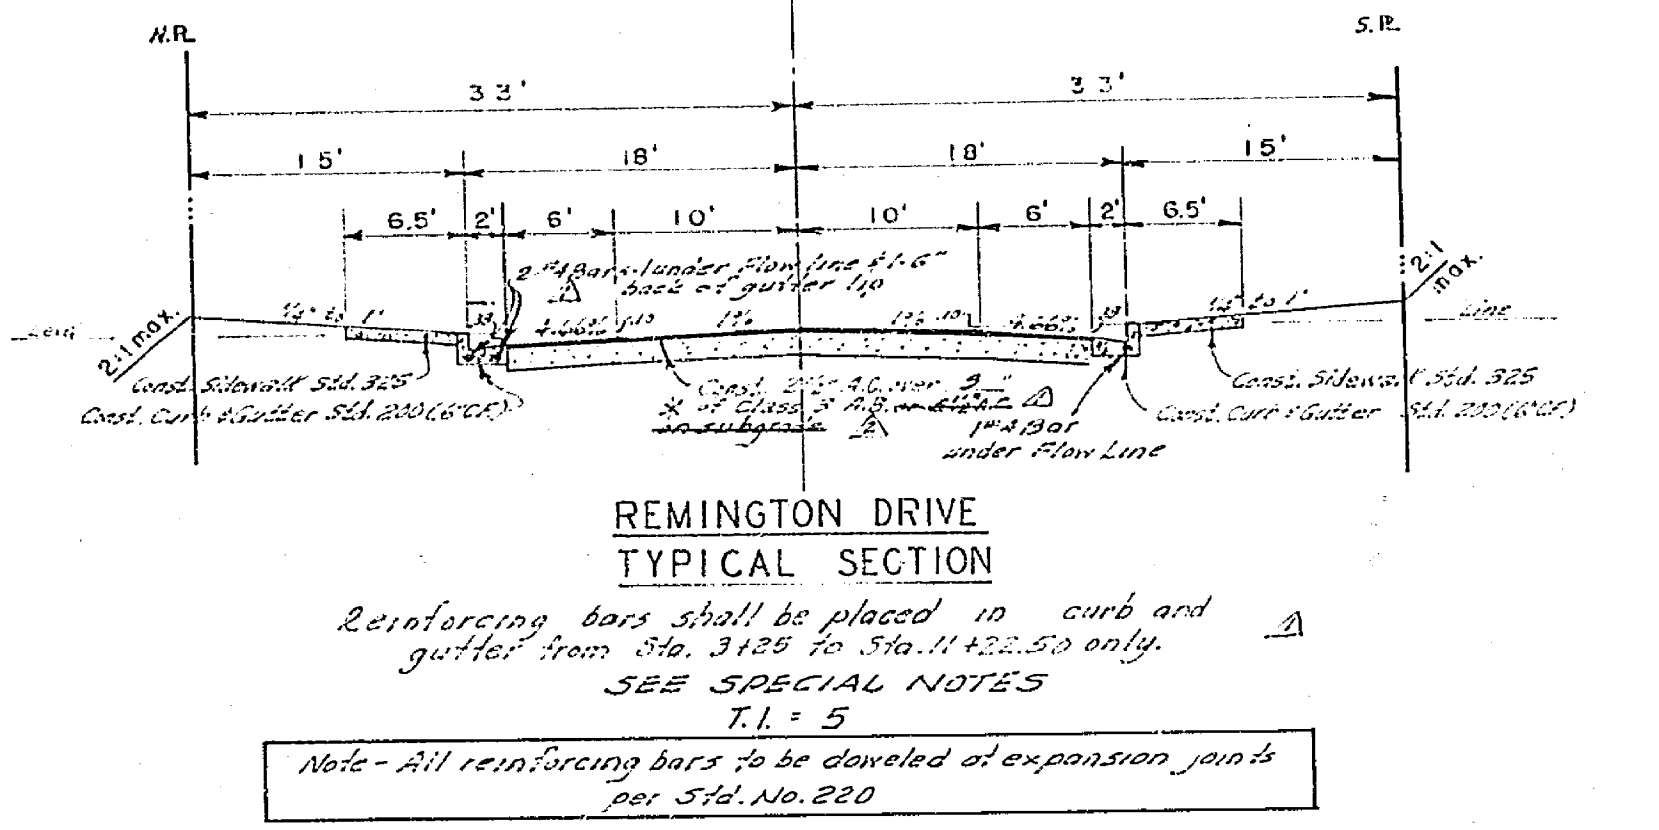 N. R.
S. R.
33'
33'
15'
18'
18'
15'
6.5'
2'
6'
10'
10'
6'
2'
6.5'
2 #4 Bars-1 under Flow line & 1-6"
back of gutter lip
1
2:1 max.
2:1
max.
1/4" to 1'
4.66%
.10
1%
1%
.10
4.66%
1/4" to 1'
Line
Const. Sidewalk Std. 325
Const. Curb & Gutter Std. 200 (6"CF)
Const. A.C. over
* of Class 3 A.B. or
on subgrade
2
1 #4 Bar
under Flow Line
Const. Sidewalk Std. 325
Const. Curb & Gutter Std. 200 (6"CF)
REMINGTON DRIVE
TYPICAL SECTION
Reinforcing bars shall be placed in curb and
gutter from Sta. 3+25 to Sta. 11+22.50 only.
1
SEE SPECIAL NOTES
T.I. = 5
Note - All reinforcing bars to be doweled at expansion joints
per Std. No. 220